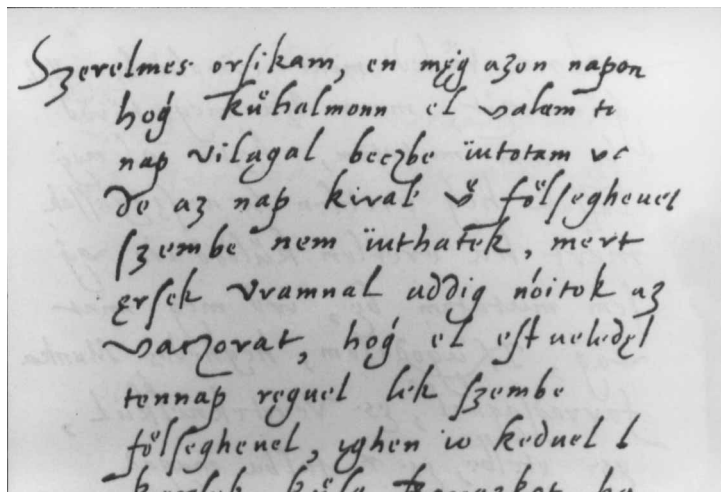 Szerelmes orsikam, en męg azon napon
hoǵ kűhalmonn el valam
nap vilagal beczbe ïutotam
de az nap kiralˊ ő fölseghevel
szembe nem ïuthatek, mert
ęrsek vramnal addig nóitok az
vaczorat, hoǵ el estueledęl
tennap reguel lek szembe
fölseghevel, yghen io keduel